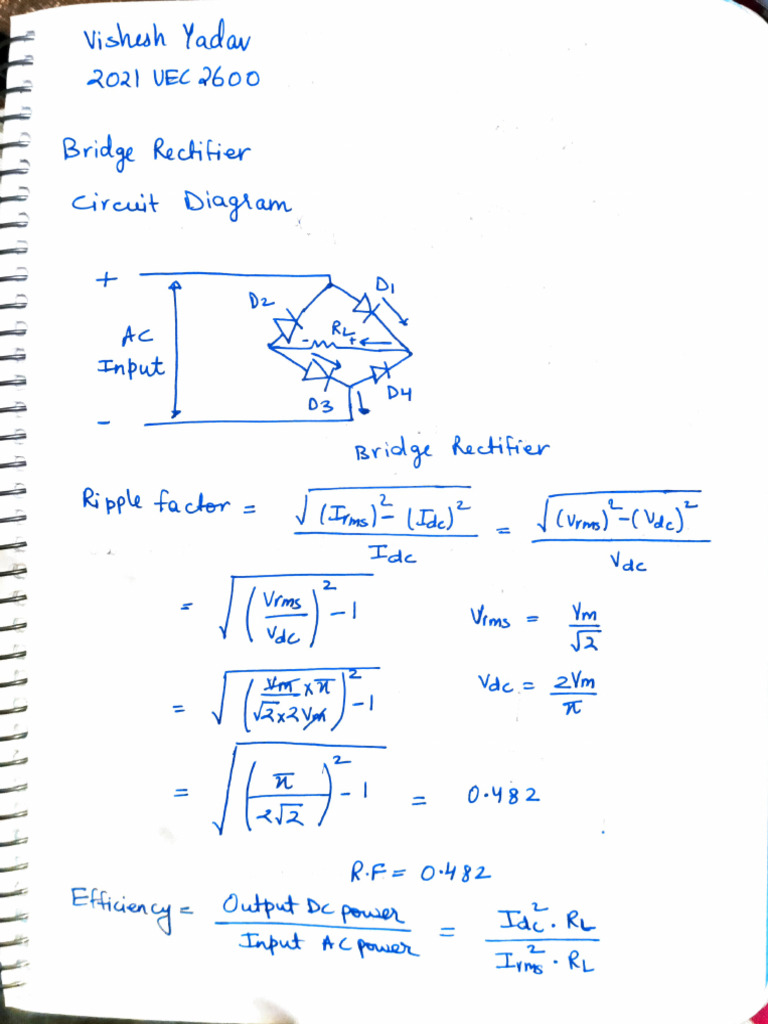 Vishesh Yadav
2021 UEC 2600
Bridge Rectifier
Circuit Diagram
+
D1
D2
RL
- +
AC
Input
D4
D3
-
Bridge Rectifier
Ripple factor = √((Irms)² - (Idc)²) / Idc = √((Vrms)² - (Vdc)²) / Vdc
= √((Vrms / Vdc)² - 1) Vrms = Vm / √2
= √((Vm × π / √2 × 2Vm)² - 1) Vdc = 2Vm / π
= √((π / 2√2)² - 1) = 0.482
R.F = 0.482
Efficiency = Output DC power / Input AC power = Idc² · RL / Irms² · RL